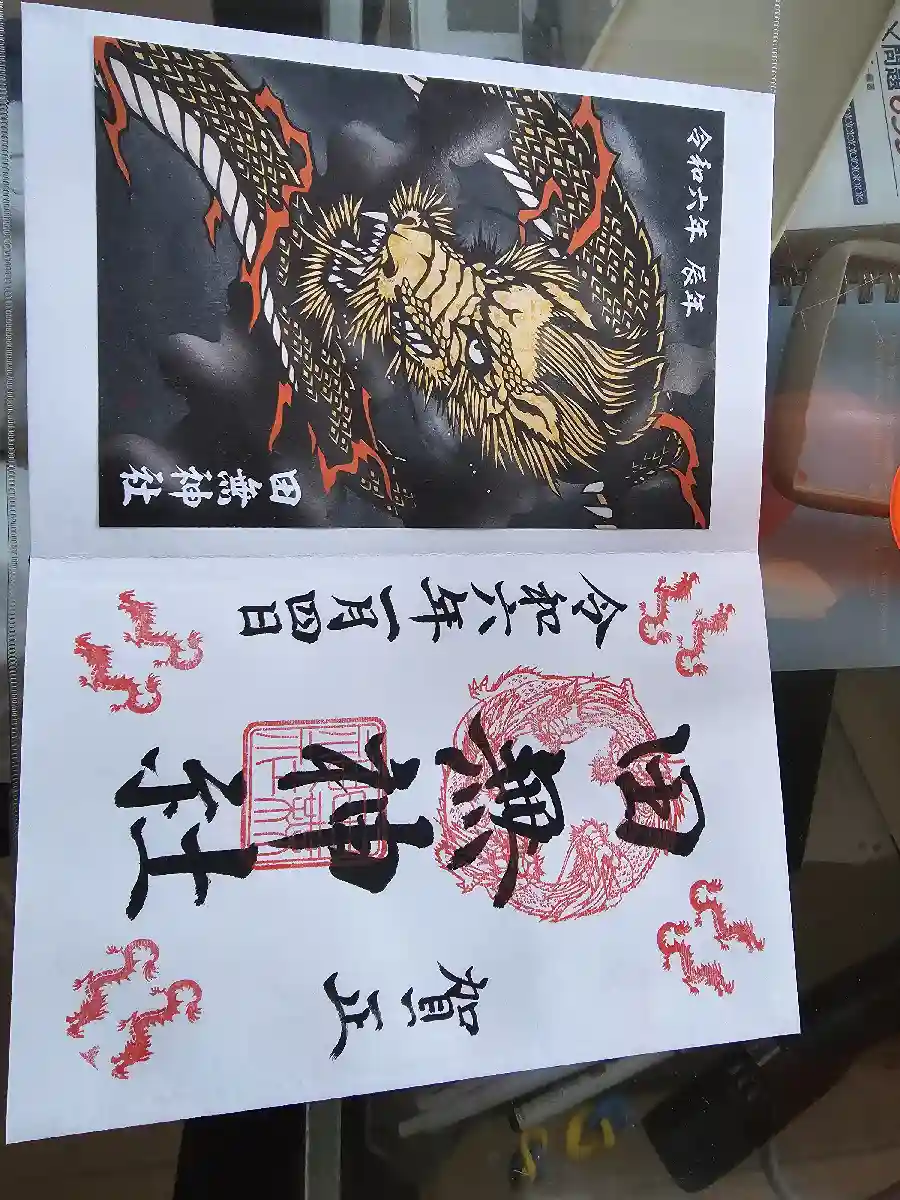 令和六年 辰年
田無神社
賀正
田無神社
令和六年一月四日
問題